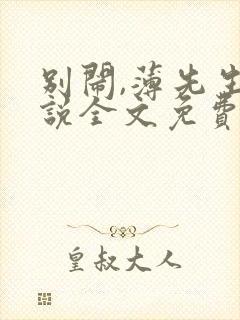 别闹,薄先生
說全文免費
皇叔大人